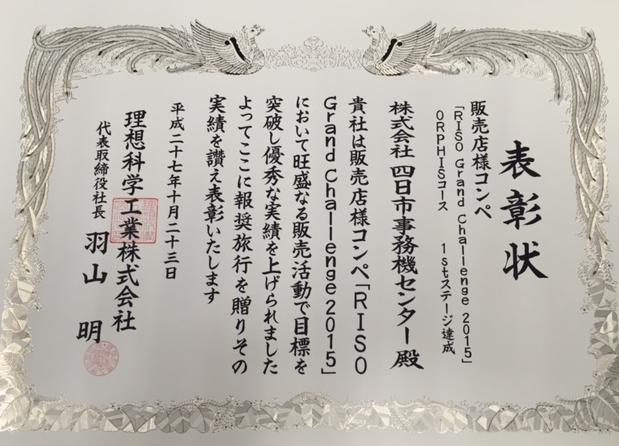 表彰状
販売店様コンペ
「RISO Grand Challenge 2015」
ORPHISコース 1stステージ達成
株式会社 四日市事務機センター 殿
貴社は販売店様コンペ「RISO
Grand Challenge 2015」
において旺盛なる販売活動で目標を
突破し優秀な実績を上げられました
よってここに報奨旅行を贈りその
実績を讃え表彰いたします
平成二十七年十月二十三日
理想科学工業株式会社
代表取締役社長 羽山 明